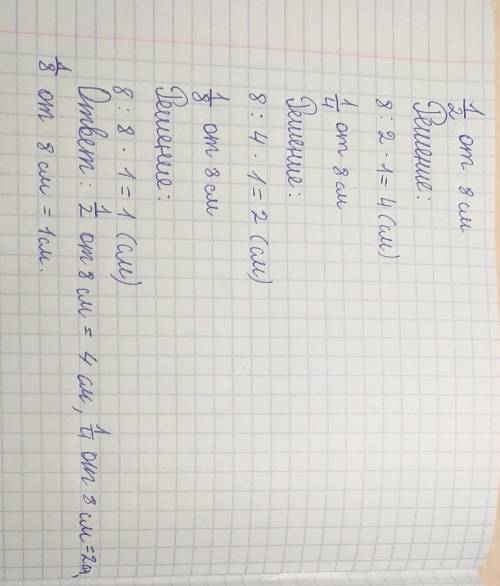 1/2 от 8 см
Решение:
8 : 2 · 1 = 4 (см)
1/4 от 8 см
Решение:
8 : 4 · 1 = 2 (см)
1/8 от 8 см
Решение:
8 : 8 · 1 = 1 (см)
Ответ: 1/2 от 8 см = 4 см, 1/4 от 8 см = 2см,
1/8 от 8 см = 1см.